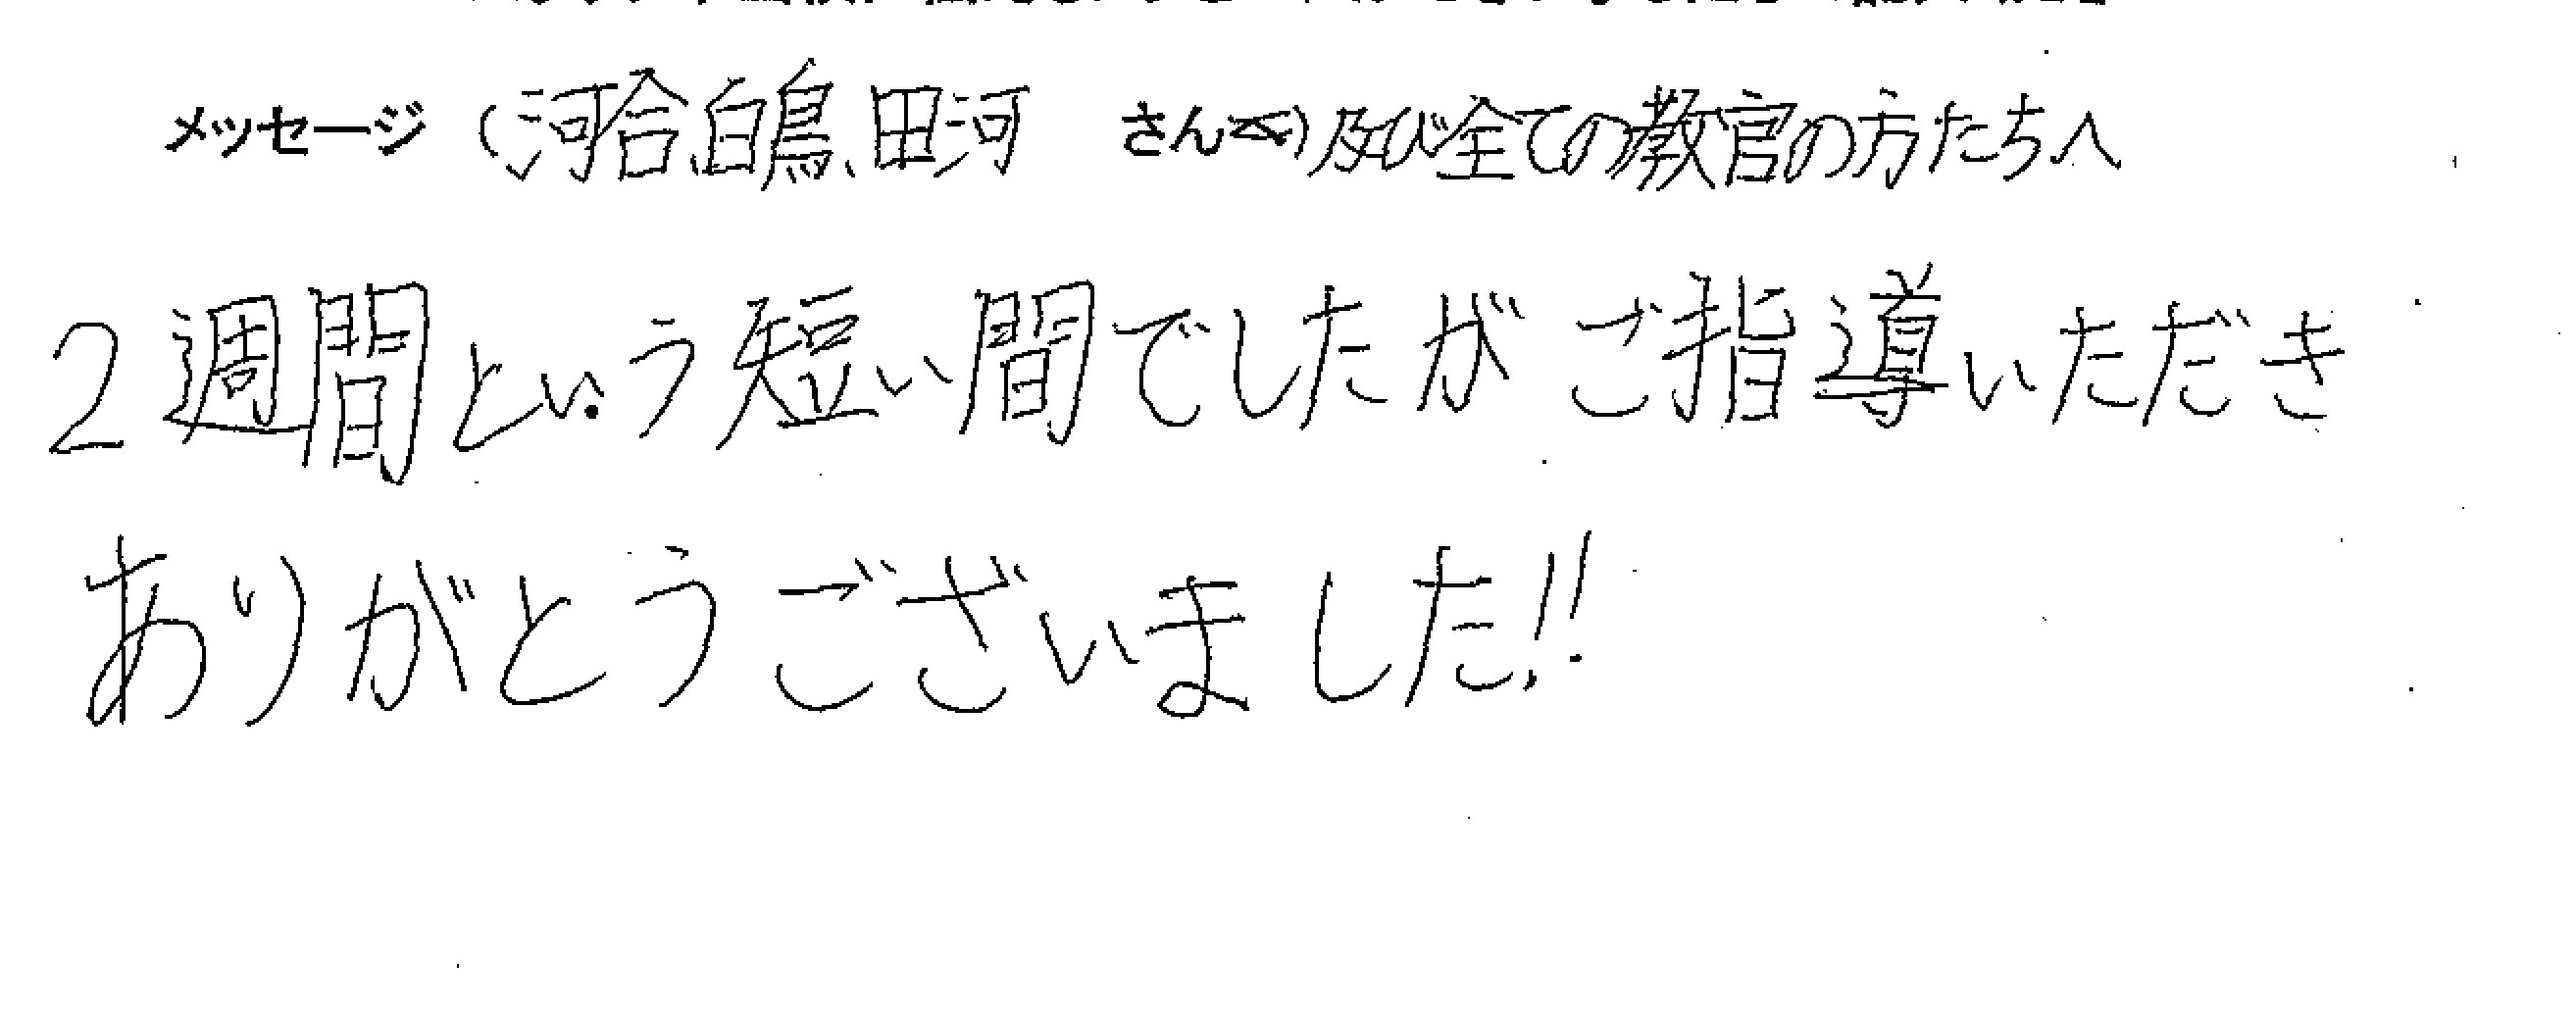 メッセージ (河合、白鳥、田河 さん) 及び全ての教官の方たちへ
2週間という短い間でしたがご指導いただき
ありがとうございました!!